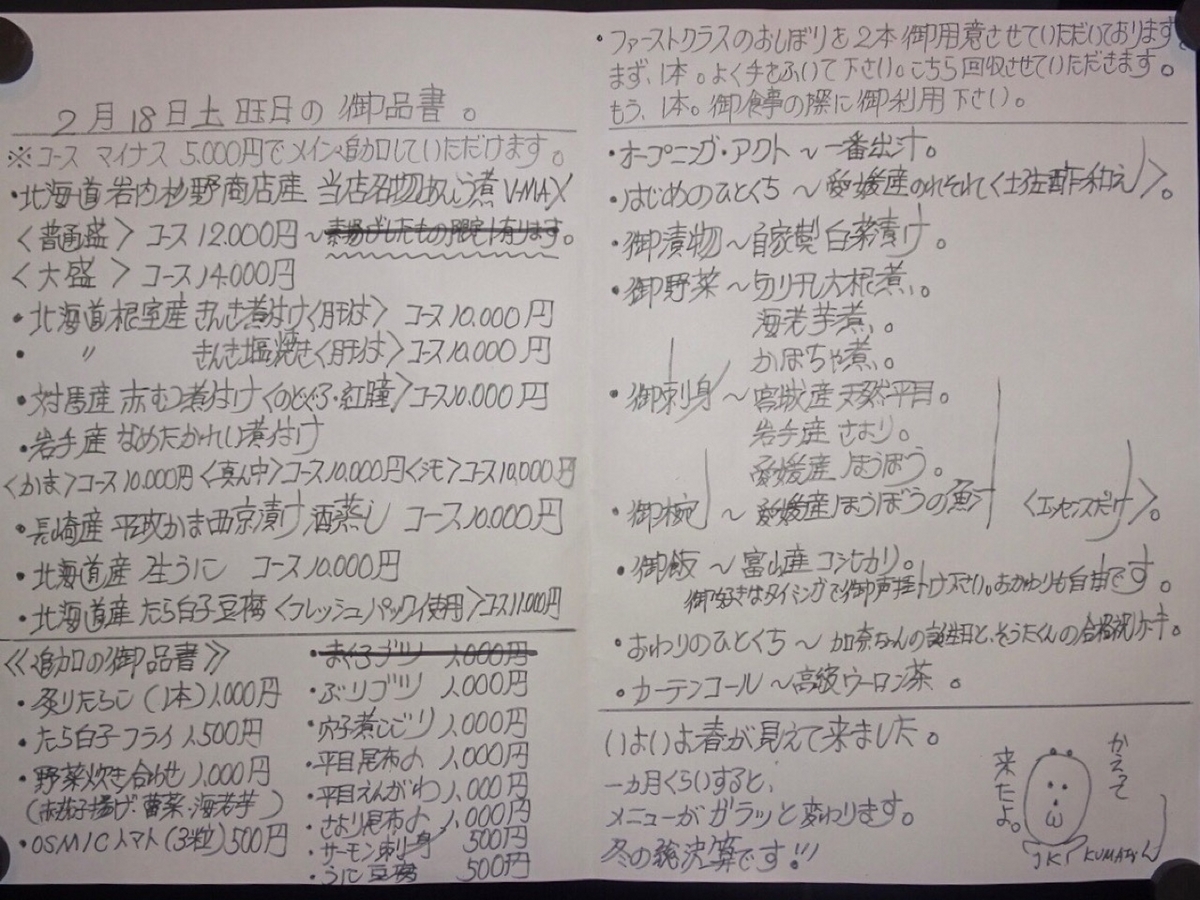 2月18日土曜日の御品書。
※コース マイナス 5.000円でメイン追加していただけます。
・北海道岩内杉野商店産 当店名物あんこう煮 V-MAX
〈普通盛〉コース12.000円〜素揚げしたもの限定1有ります。
〈大盛〉コース14.000円
・北海道根室産 きんき煮付け〈肝付〉 コース10.000円
・ 〃 きんき塩焼き〈肝付〉コース10.000円
・対馬産 赤むつ煮付け〈のどぐろ・紅瞳〉コース10.000円
・岩手産 なめたかれい煮付け
〈かま〉コース10.000円〈真ん中〉コース10.000円〈シモ〉コース10.000円
・長崎産 平政かま西京漬け酒蒸し コース10.000円
・北海道産 生うに コース10.000円
・北海道産 たら白子豆腐〈フレッシュパック使用〉コース11.000円
《追加の御品書》
・炙りたらこ(1本)1.000円
・たら白子フライ 1.500円
・野菜炊き合わせ 1.000円
(赤茄子揚げ・蕾菜・海老芋)
・OSMICトマト(3粒)500円
・まぐろブツ 1.000円
・ぶりブツ 1.000円
・穴子煮こごり 1.000円
・平目昆布〆 1.000円
・平目えんがわ 1.000円
・さより昆布〆 1.000円
・サーモン刺身 500円
・うに豆腐 500円
・ファーストクラスのおしぼりを2本御用意させていただいております。
まず、1本。よく手をふいて下さい。こちら回収させていただきます。
もう、1本。御食事の際に御利用下さい。
・オープニング・アクト〜一番出汁。
・はじめのひとくち〜愛媛産のれそれ〈土佐酢和え〉。
・御漬物〜自家製白菜漬け。
・御野菜〜切り干し大根煮。
海老芋煮。
かぼちゃ煮。
・御刺身〜宮城産天然平目。
岩手産さより。
愛媛産ほうぼう。
・御椀〜愛媛産ほうぼうの魚汁〈エッセンスだけ〉。
・御飯〜富山産コシヒカリ。
御好きなタイミングで御声掛け下さい。おかわりも自由です。
・おわりのひとくち〜加奈ちゃんの誕生日と、そうたくんの合格祝いケーキ。
・カーテンコール〜高級ウーロン茶。
いよいよ春が見えて来ました。
一カ月くらいすると、
メニューがガラッと変わります。
冬の総決算です!!!
かえって
来たよ。